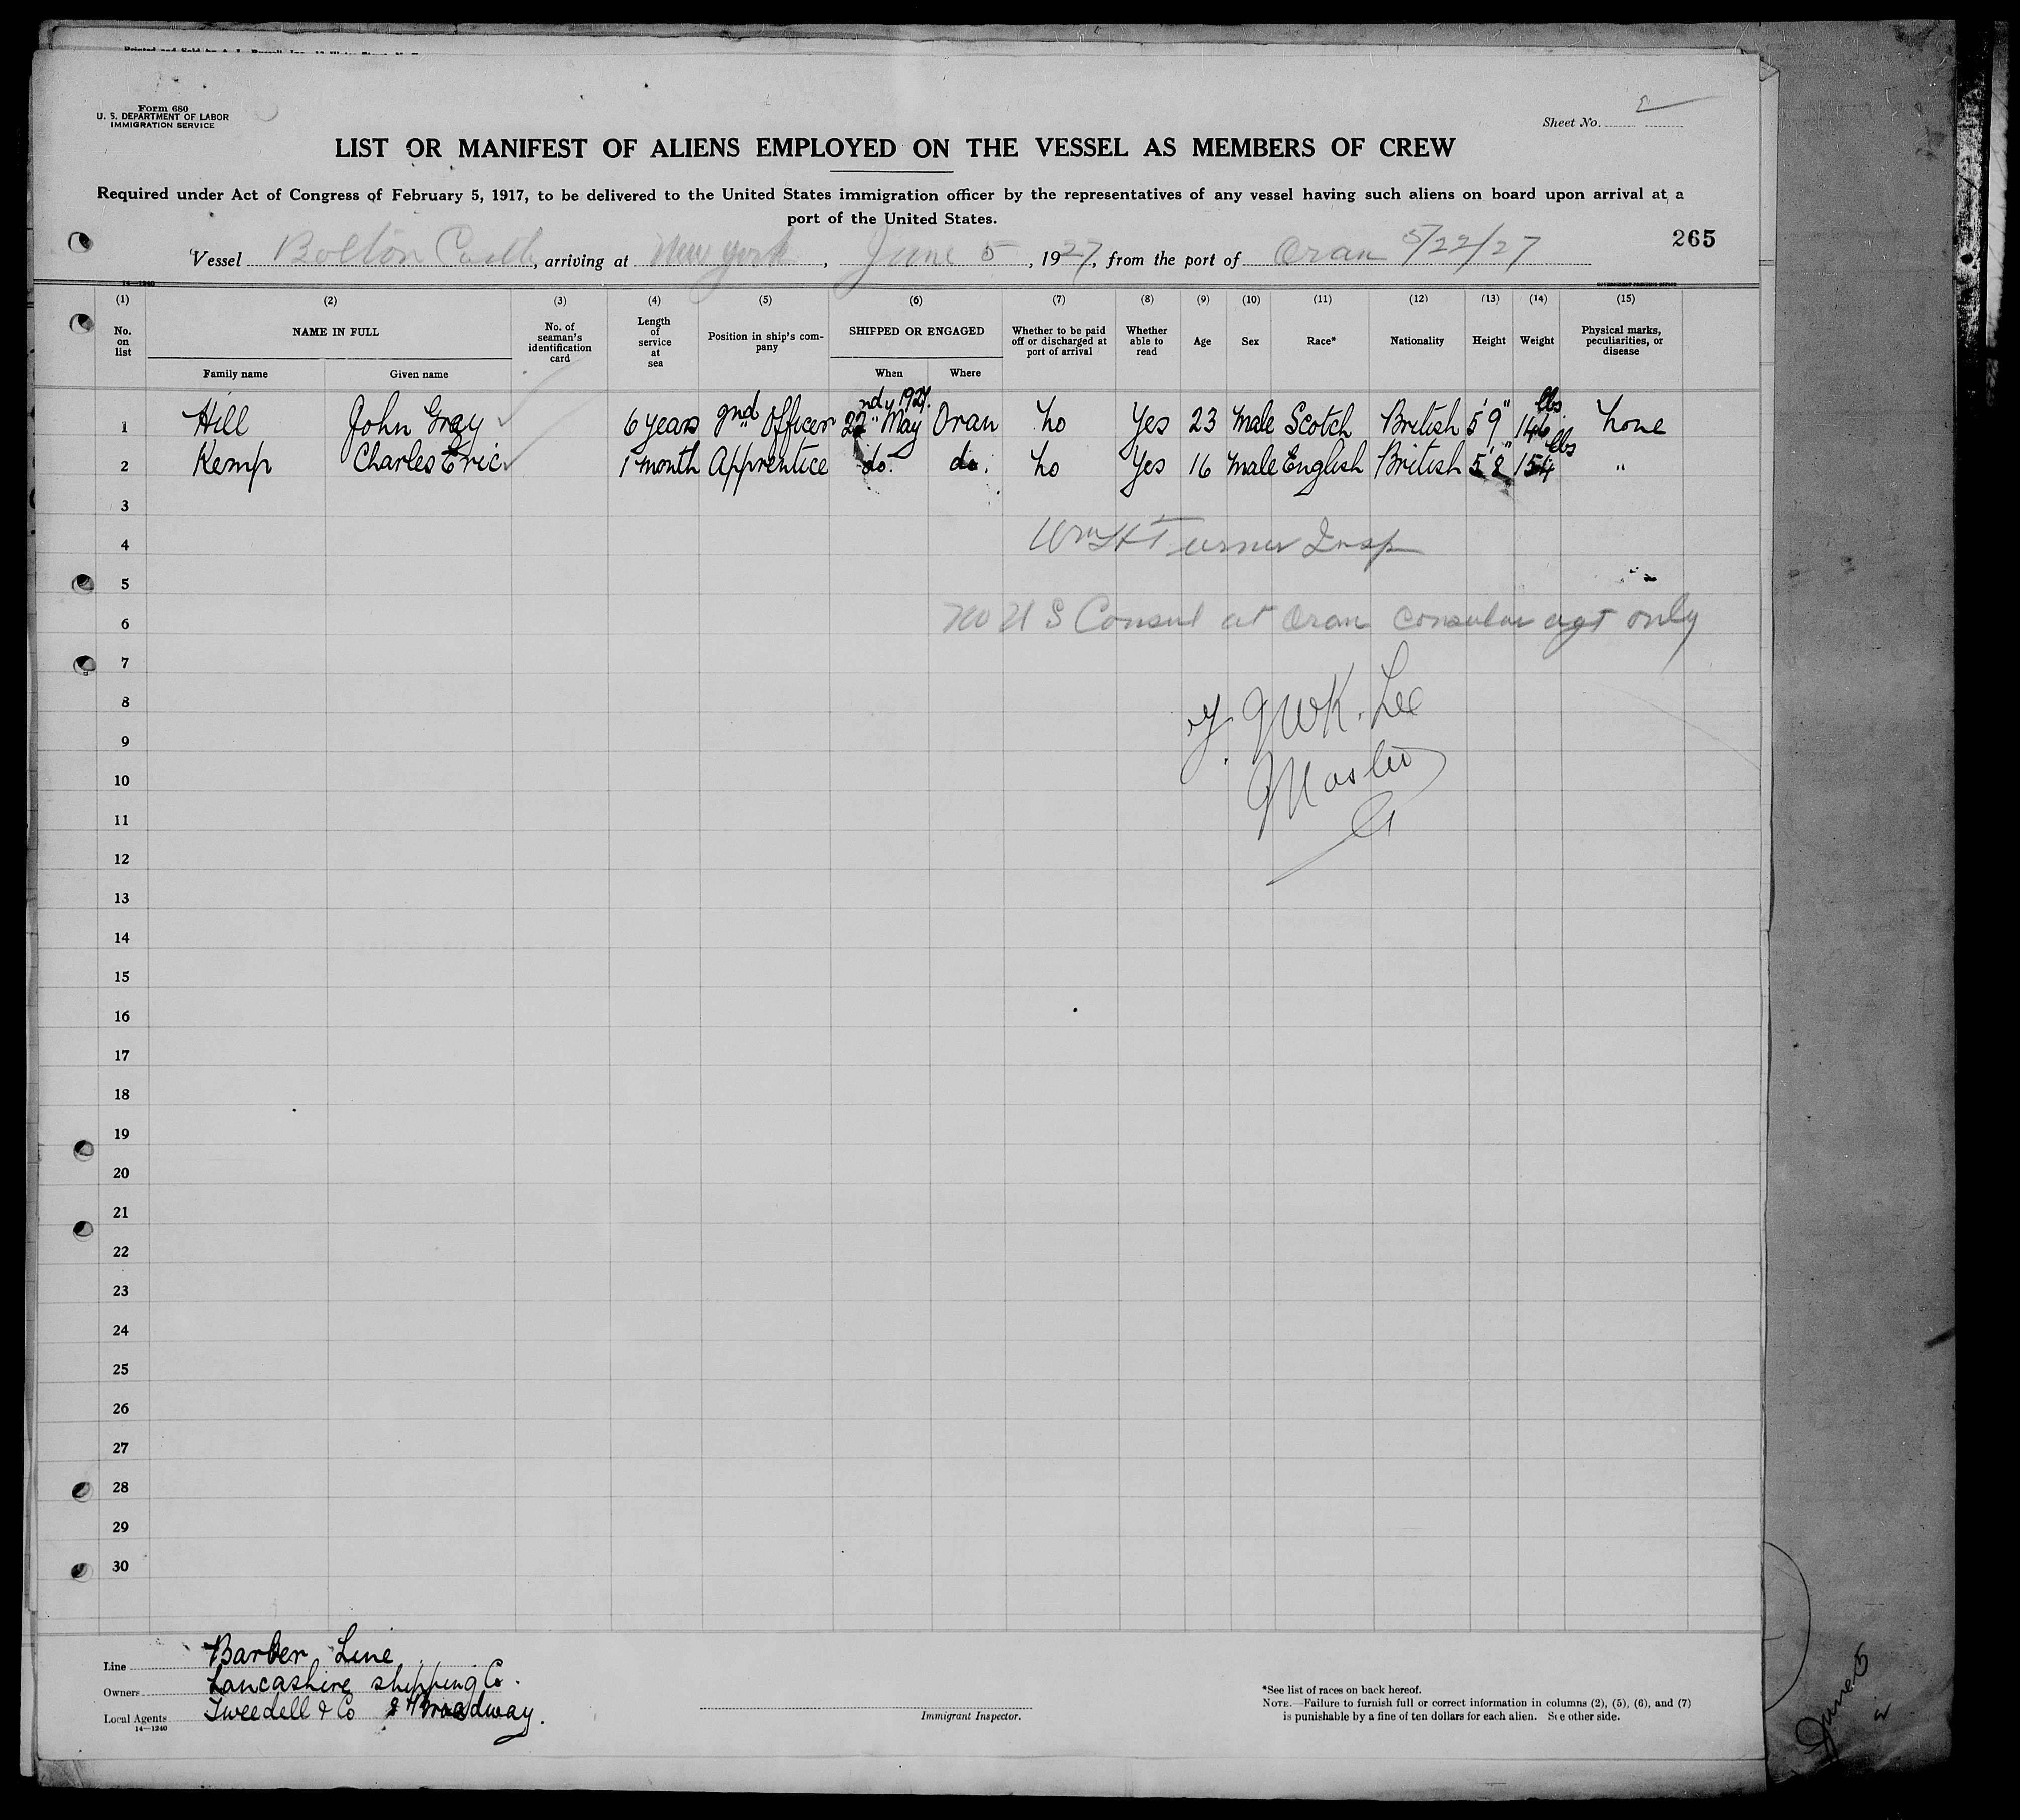 Form 680
U. S. DEPARTMENT OF LABOR
IMMIGRATION SERVICE
Sheet No. 2
LIST OR MANIFEST OF ALIENS EMPLOYED ON THE VESSEL AS MEMBERS OF CREW
Required under Act of Congress of February 5, 1917, to be delivered to the United States immigration officer by the representatives of any vessel having such aliens on board upon arrival at a
port of the United States.
265
Vessel Bolton Castle, arriving at New York, June 5, 1927, from the port of Oran 5/22/27
14—1240 GOVERNMENT PRINTING OFFICE
(1) (2) (3) (4) (5) (6) (7) (8) (9) (10) (11) (12) (13) (14) (15)
No. on list NAME IN FULL Family name Given name No. of seaman's identification card Length of service at sea Position in ship's company SHIPPED OR ENGAGED When Where Whether to be paid off or discharged at port of arrival Whether able to read Age Sex Race* Nationality Height Weight Physical marks, peculiarities, or disease
1 Hill John Gray 6 years 2nd Officer 22nd May 1927. Oran No Yes 23 Male Scotch British 5'9" 146 lbs None
2 Kemp Charles Eric 1 month Apprentice do. do. No Yes 16 Male English British 5'8" 154 lbs "
3
4 Wm H Turner Insp
5
6 No U S Consul at Oran consular agt only
7
8 J W K. Lee
9
10 Master
11
12
13
14
15
16
17
18
19
20
21
22
23
24
25
26
27
28
29
30
Line Barber Line
Owners Lancashire shipping Co.
Local Agents Tweedell & Co Broadway.
14—1240
Immigrant Inspector.
*See list of races on back hereof.
NOTE.—Failure to furnish full or correct information in columns (2), (5), (6), and (7)
is punishable by a fine of ten dollars for each alien. See other side.
June 5